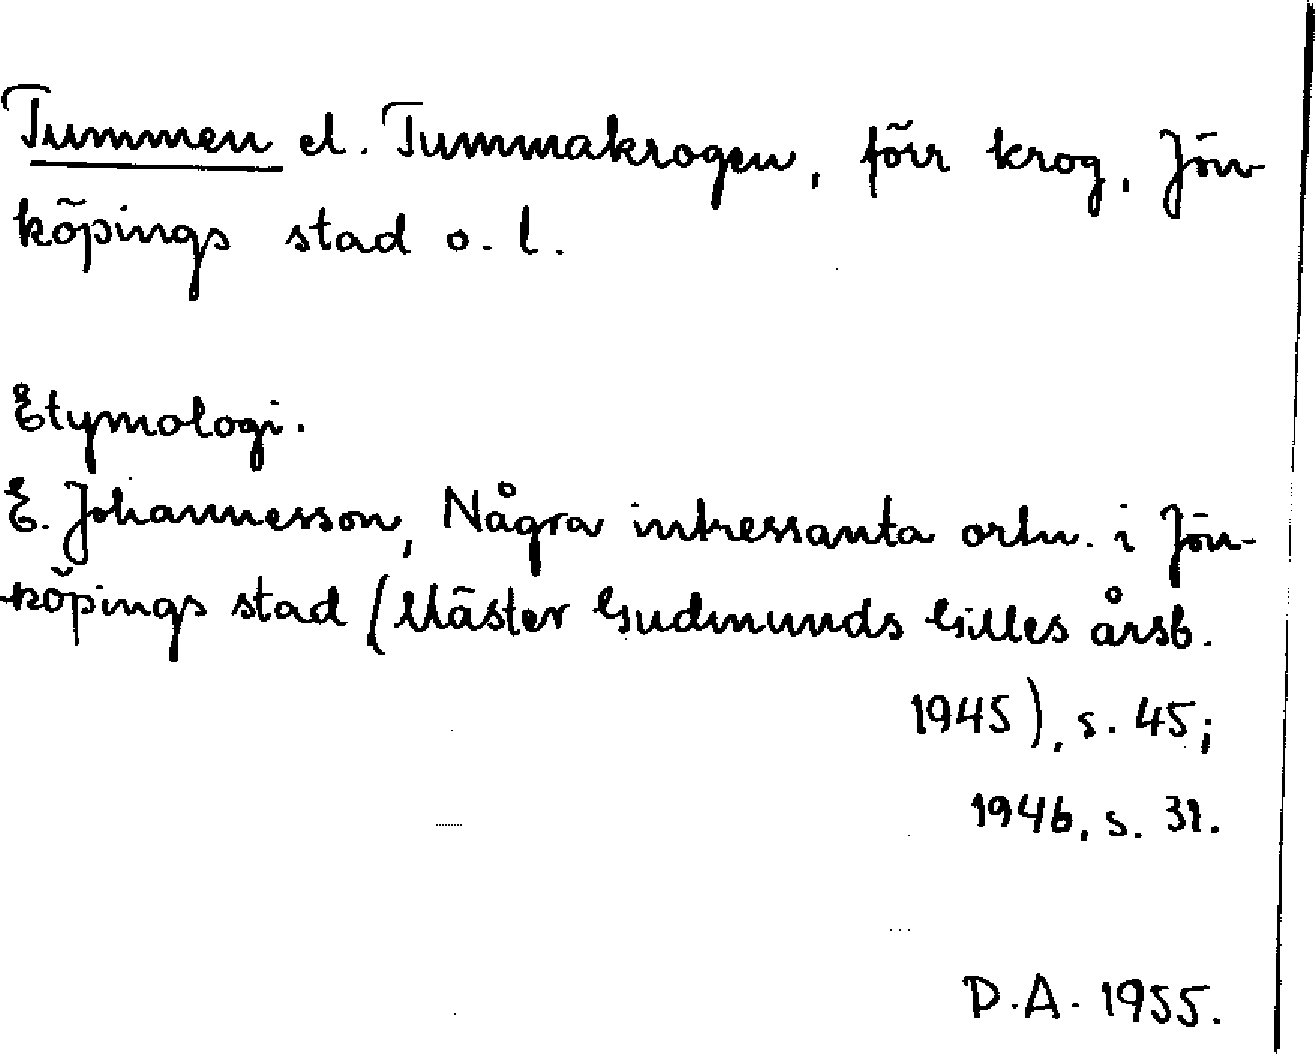 Tummen el. Tummakrogen, förr krog, Jön-
köpings stad o. l.
Etymologi.
E. Johannesson, Några intressanta ortn. i Jön-
köpings stad (Mäster Gudmunds Gilles årsb.
1945), s. 45;
1946, s. 31.
D.A. 1955.